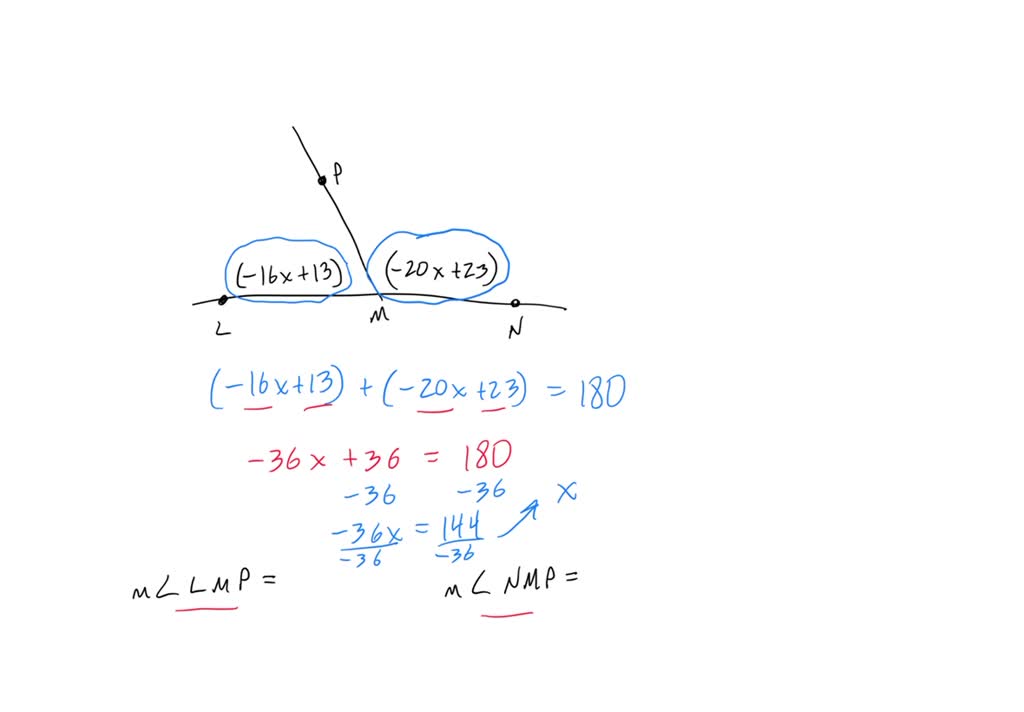 P
(-16x+13) (-20x+23)
L M N
(-16x+13) + (-20x+23) = 180
-36x +36 = 180
-36 -36 x
-36x = 144
-36 -36
m∠LMP = m∠NMP =